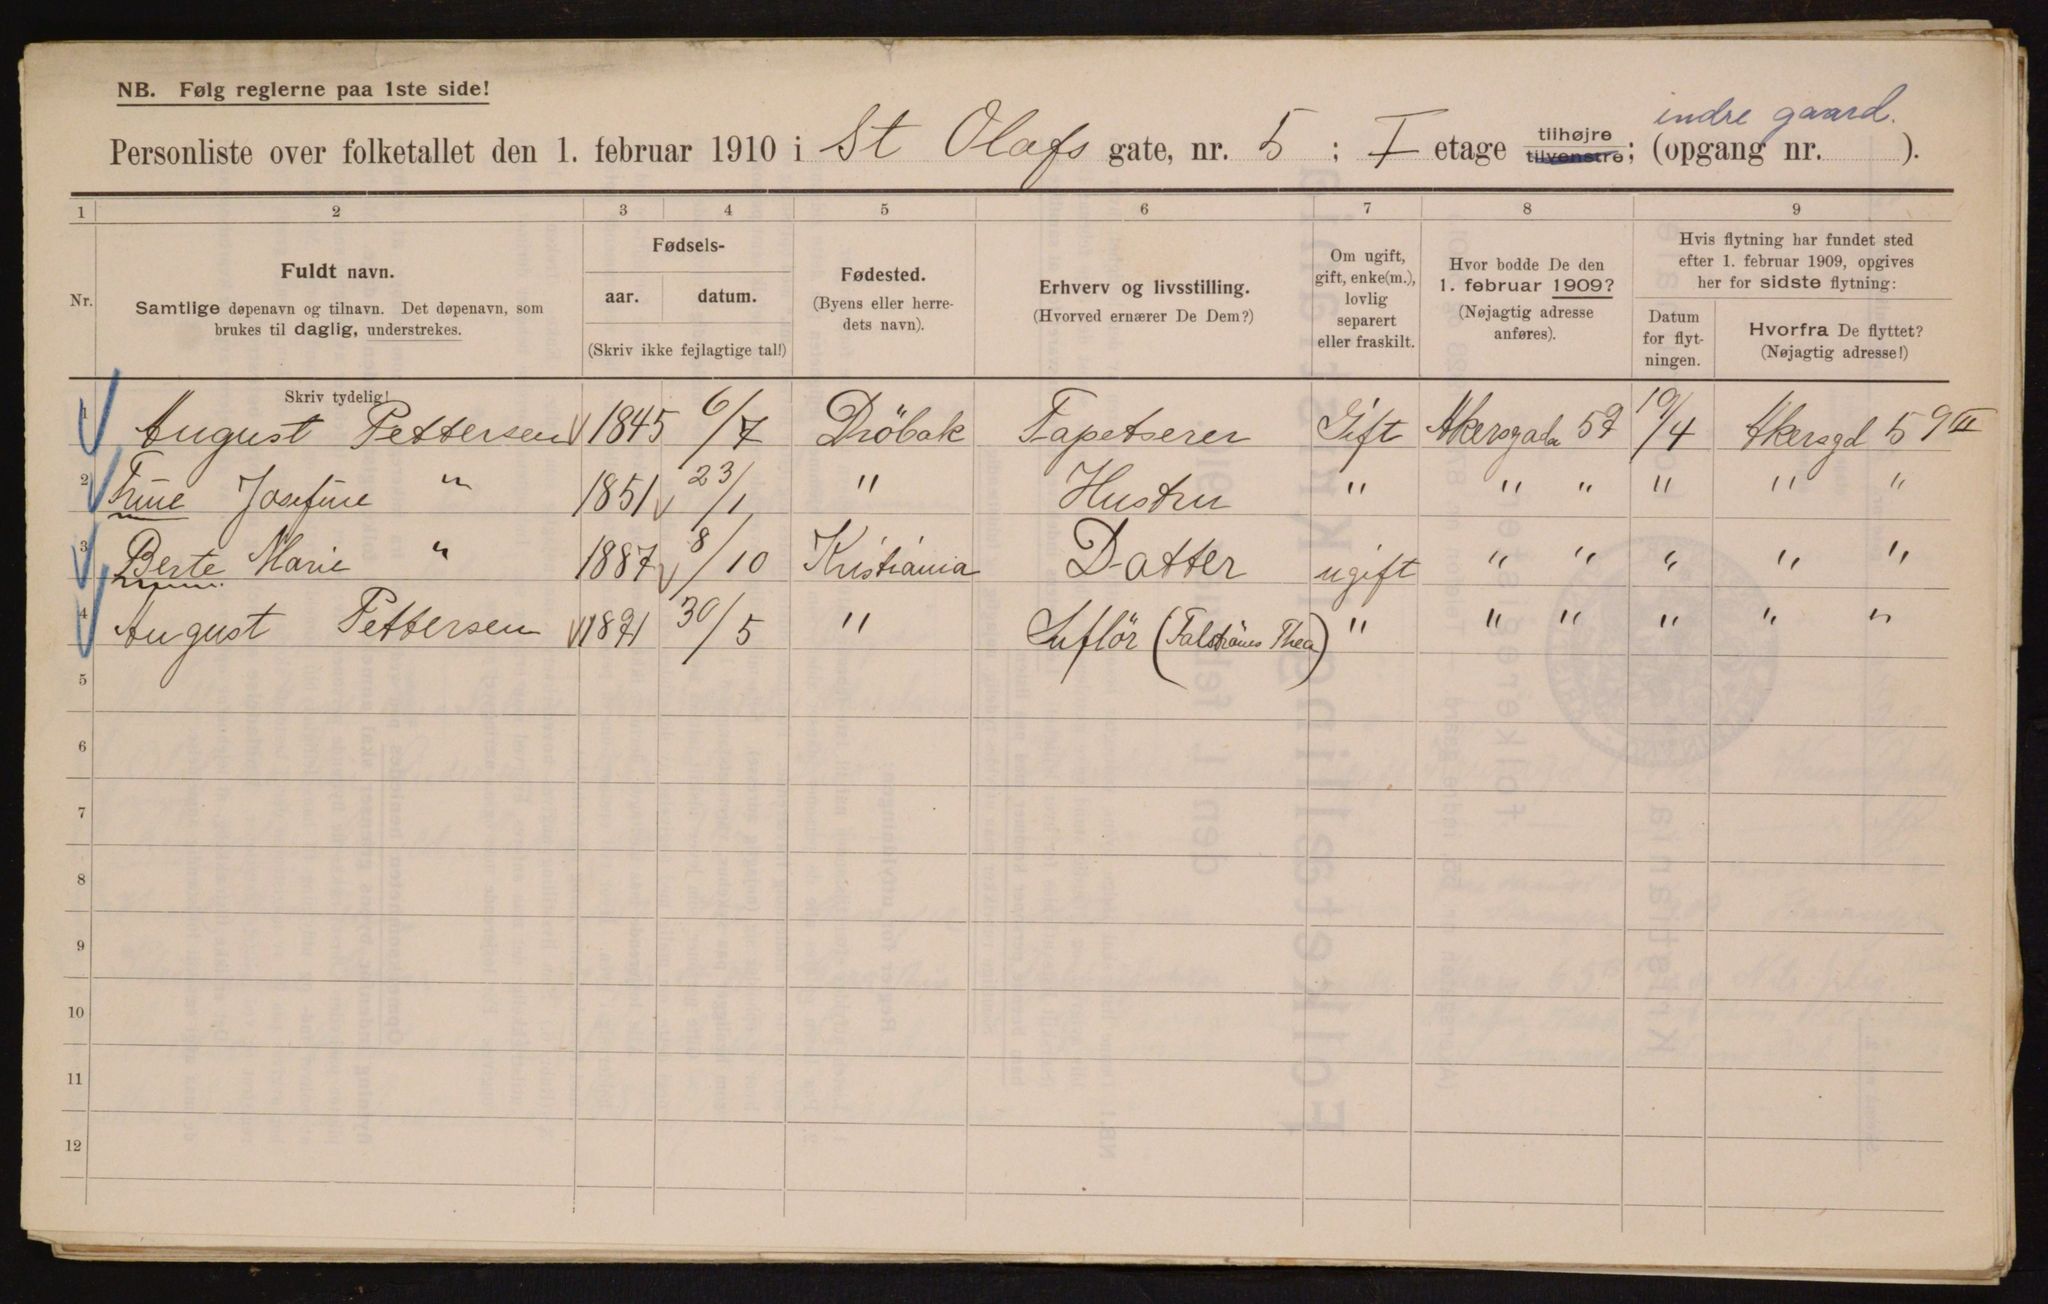 NB. Følg reglerne paa 1ste side!
indre gaard.
Personliste over folketallet den 1. februar 1910 i St Olafs gate, nr. 5 ; I etage tilhøjre tilvenstre; (opgang nr. ).
1 2 3 4 5 6 7 8 9
Nr.
Fuldt navn.
Samtlige døpenavn og tilnavn. Det døpenavn, som
brukes til daglig, understrekes.
Skriv tydelig!
Fødsels-
aar. datum.
(Skriv ikke fejlagtige tal!)
Fødested.
(Byens eller herre-
dets navn).
Erhverv og livsstilling.
(Hvorved ernærer De Dem?)
Om ugift,
gift, enke(m.),
lovlig
separert
eller fraskilt.
Hvor bodde De den
1. februar 1909?
(Nøjagtig adresse
anføres).
Hvis flytning har fundet sted
efter 1. februar 1909, opgives
her for sidste flytning:
Datum
for flyt-
ningen.
Hvorfra De flyttet?
(Nøjagtig adresse!)
1 August Pettersen 1845 6/7 Dröbak Tapetserer Gift Akersgada 59 10/4 Akersgd 59 III
2 Trine Josefine " 1851 23/1 " Hustru " " " " " "
3 Berte Marie " 1887 8/10 Kristiania Datter ugift " " " " "
4 August Pettersen 1891 30/5 " Suflör ( Thea) " " " " " "
5
6
7
8
9
10
11
12